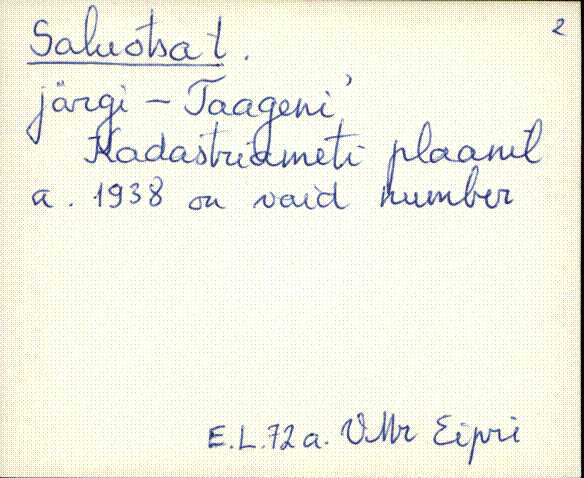 2
Saluotsa t.
järgi - Taageni'
Kadastriameti plaanil
a. 1938 on vaid number
E.L.72a. VMr Eipri